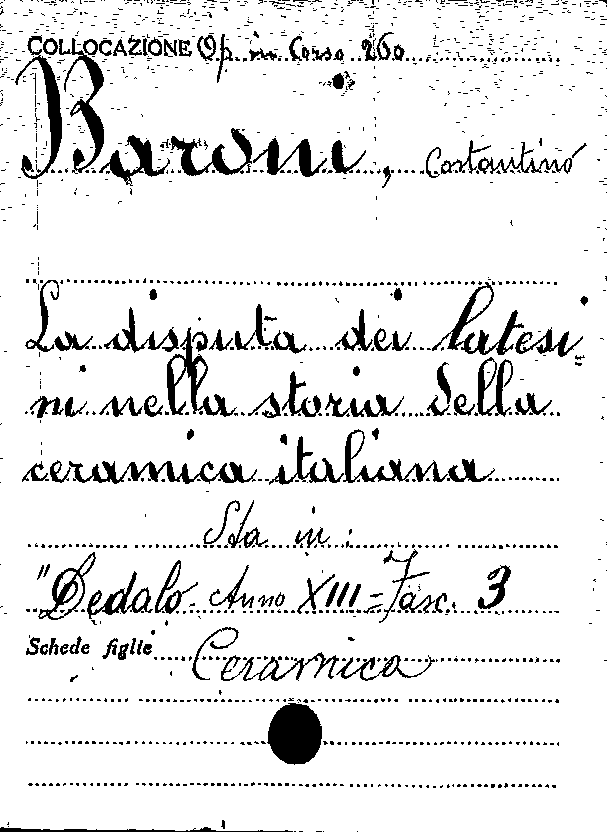 COLLOCAZIONE Op. in Corso 260
Baroni, Costantino
La disputa dei latesi=
ni nella storia della
ceramica italiana
Sta in:
"Dedalo. Anno XIII = Fasc. 3
Schede figlie Ceramica